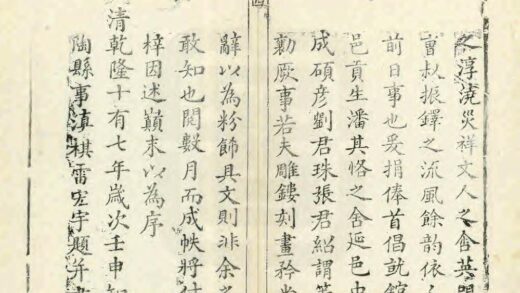 之淳澆災祥文人之會英
曹叔振鐸之流風餘韵依
前日事也爰捐俸首倡就館
邑貢生潘其恪之舍延邑中
成碩彦劉君珠張君紹謂
勷厥事若夫雕鏤刻畫矜尚
辭以為粉飾具文則非余之
敢知也閱數月而成帙將付
梓因述巔末以為序
清乾隆十有七年歲次壬申知
陶縣事滇棋雷宏宇題并書